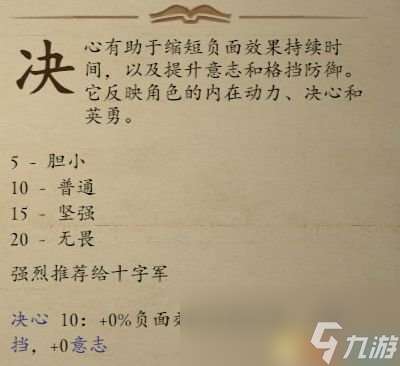 决
心有助于缩短负面效果持续时
间，以及提升意志和格挡防御。
它反映角色的内在动力、决心和
英勇。
5 - 胆小
10 - 普通
15 - 坚强
20 - 无畏
强烈推荐给十字军
决心 10：+0%负面
挡，+0意志
九游